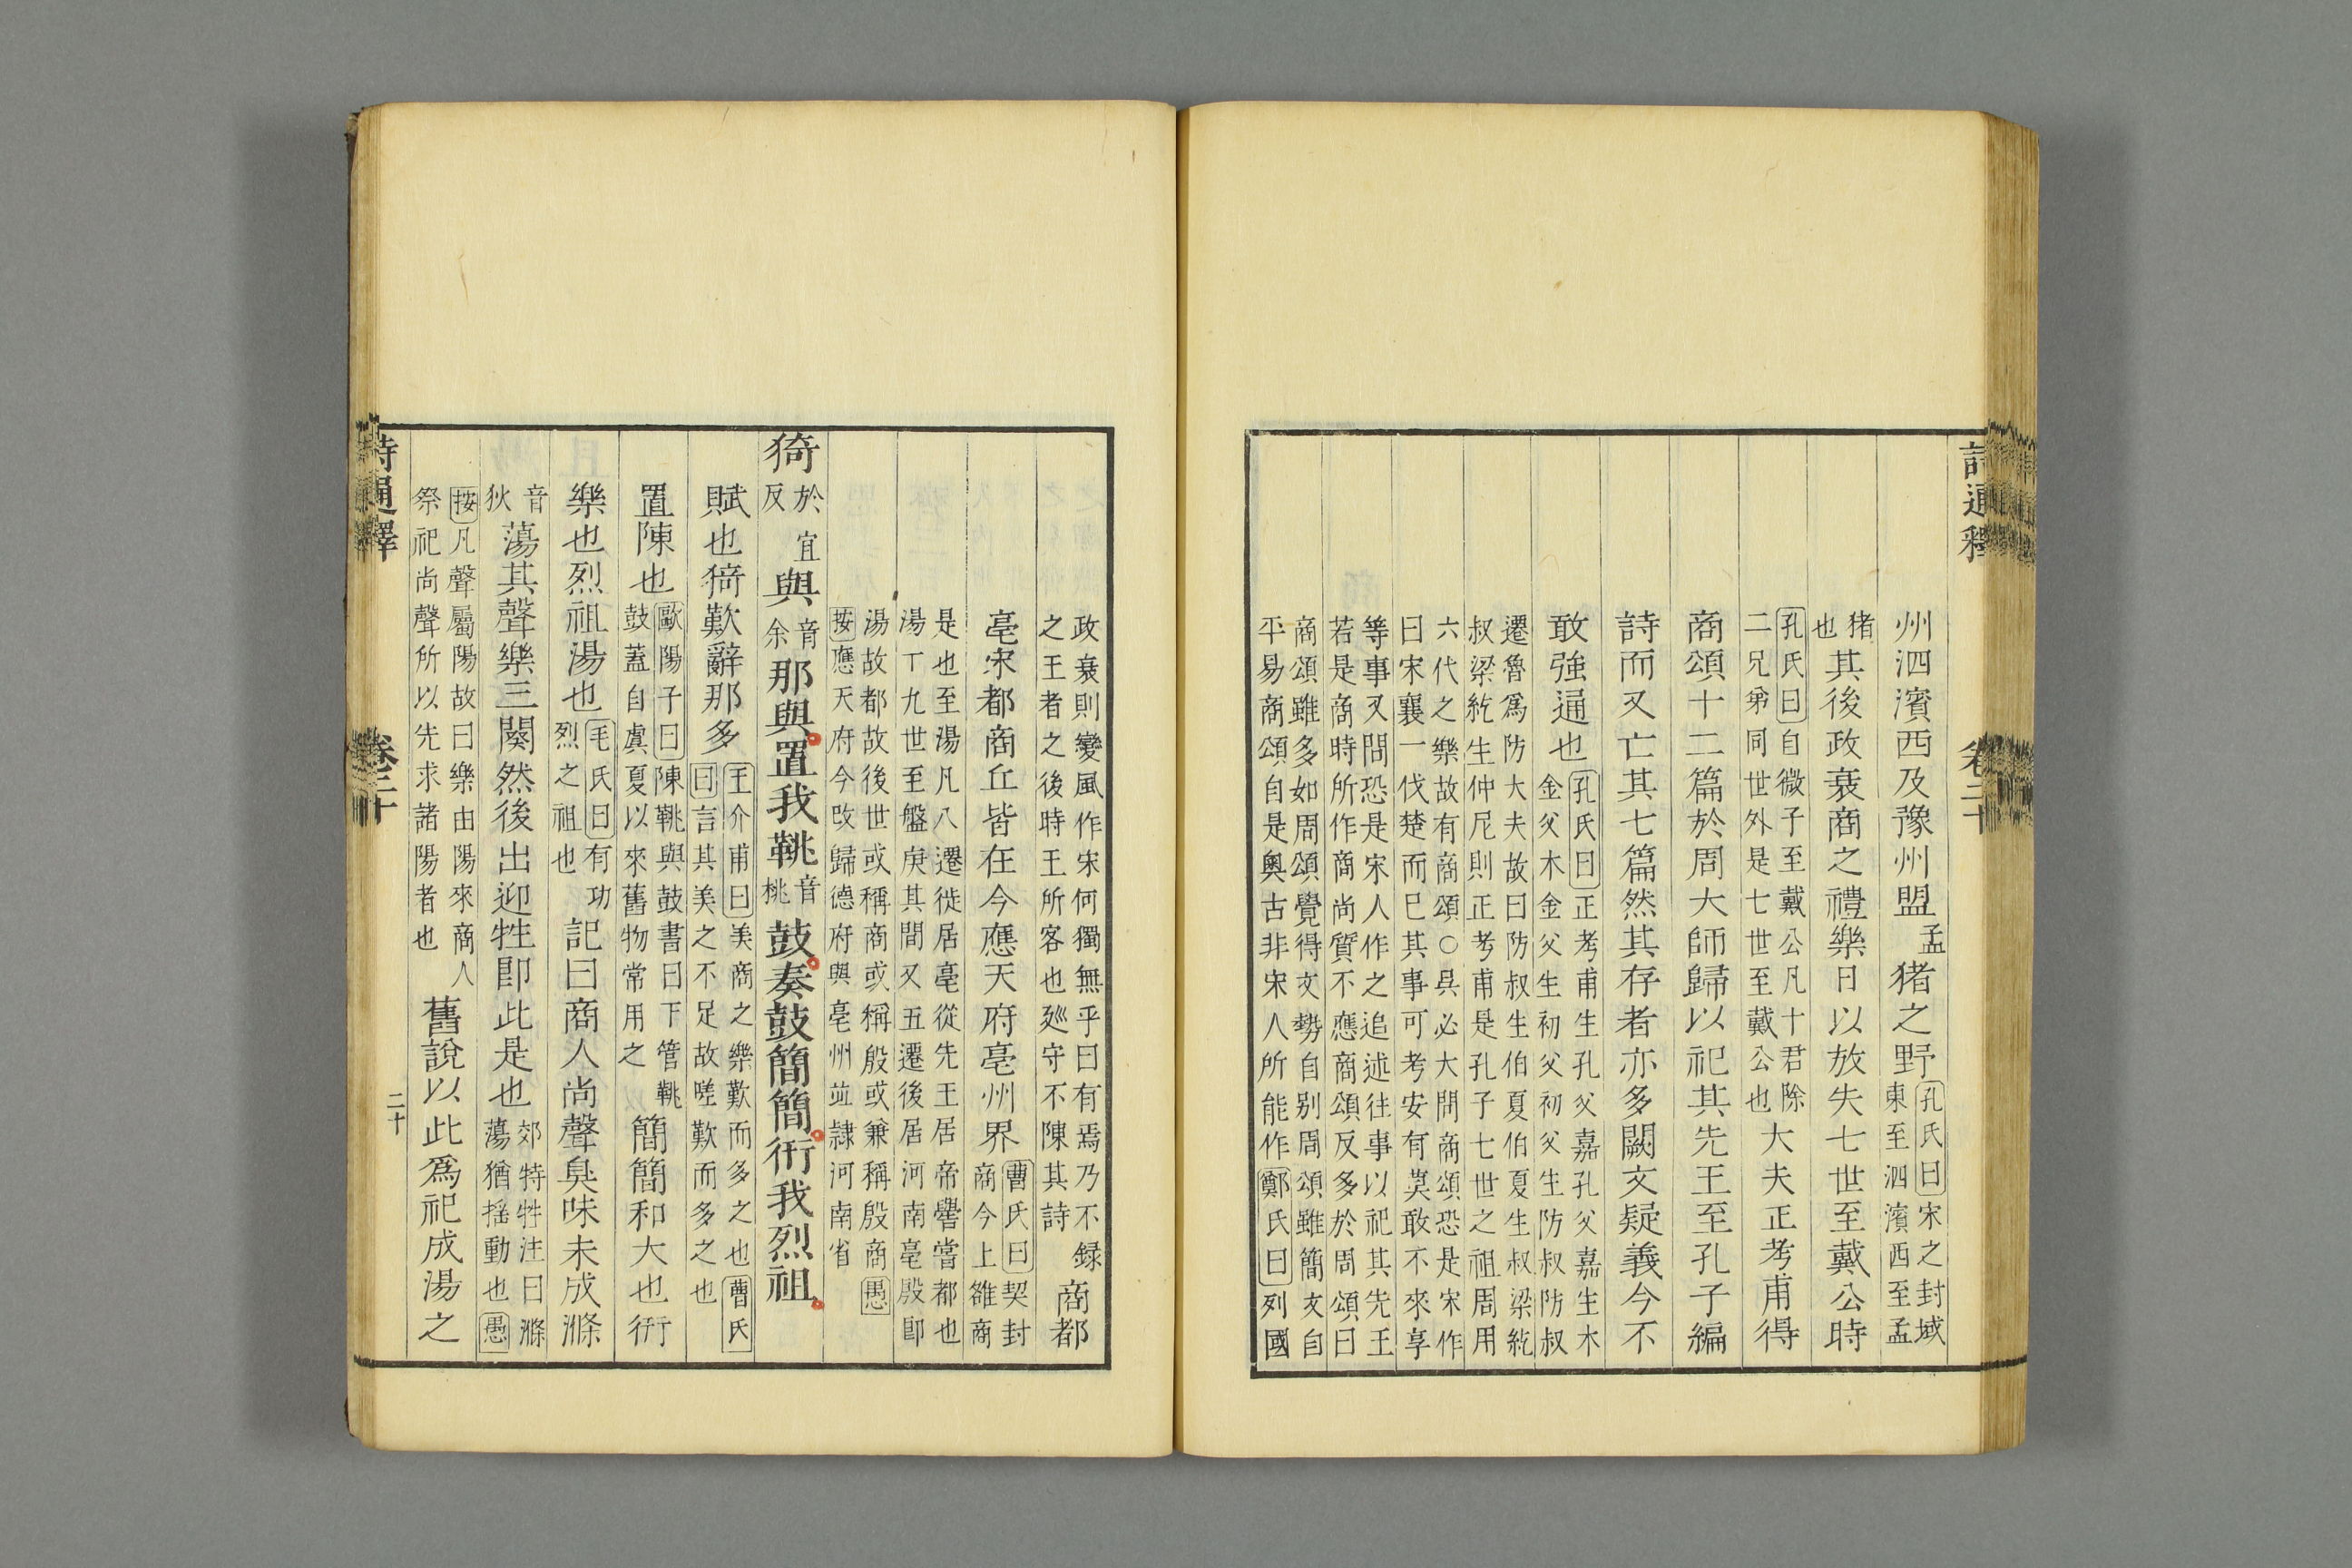 詩通釋
卷二十
州泗濱西及豫州盟孟猪之野孔氏曰宋之封域東至泗濱西至孟
猪也其後政衰商之禮樂日以放失七世至戴公時
孔氏曰自微子至戴公凡十君除二兄弟同世外是七世至戴公也大夫正考甫得
商頌十二篇於周大師歸以祀其先王至孔子編
詩而又亡其七篇然其存者亦多闕文疑義今不
敢強通也孔氏曰正考甫生孔父嘉孔父嘉生木金父木金父生初父初父生防叔防叔
遷魯爲防大夫故曰防叔生伯夏伯夏生叔梁紇叔梁紇生仲尼則正考甫是孔子七世之祖周用
六代之樂故有商頌○呉必大問商頌恐是宋作曰宋襄一伐楚而已其事可考安有莫敢不來享
等事又問恐是宋人作之追述往事以祀其先王若是商時所作商尚質不應商頌反多於周頌曰
商頌雖多如周頌覺得文勢自别周頌雖簡文自平易商頌自是奧古非宋人所能作鄭氏曰列國
政衰則變風作宋何獨無乎曰有焉乃不録之王者之後時王所客也廵守不陳其詩商都
亳宋都商丘皆在今應天府亳州界曹氏曰契封商今上雒商
是也至湯凡八遷徙居亳從先王居帝嚳嘗都也湯丁九世至盤庚其間又五遷後居河南亳殷卽
湯故都故後世或稱商或稱殷或兼稱殷商愚按應天府今改歸德府與亳州竝隷河南省
猗於宜反與音余那與置我鞉音桃鼓奏鼓簡簡衎我烈祖
賦也猗歎辭那多王介甫曰美商之樂歎而多之也曹氏曰言其美之不足故嗟歎而多之也
置陳也歐陽子曰陳鞉與鼓書曰下管鞉鼓蓋自虞夏以來舊物常用之簡簡和大也衎
樂也烈祖湯也毛氏曰有功烈之祖也記曰商人尚聲臭味未成滌
音狄蕩其聲樂三闋然後出迎牲卽此是也郊特牲注曰滌蕩猶揺動也愚
按凡聲屬陽故曰樂由陽來商人祭祀尚聲所以先求諸陽者也舊說以此爲祀成湯之
詩通釋
卷二十
二十